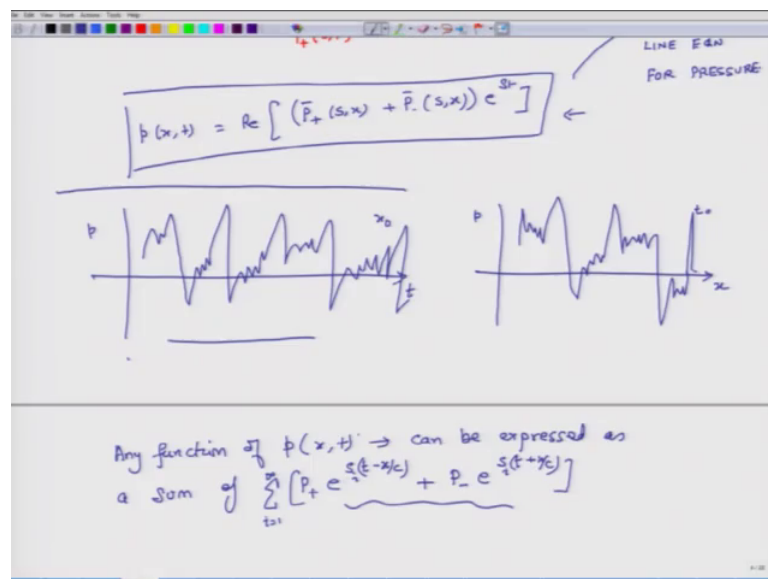 LINE EQN
FOR PRESSURE
p(x,t) = Re [ (P̄₊(s,x) + P̄₋(s,x)) e^{st} ]
p
x₀
t
p
t₀
x
Any function of p(x,t) → can be expressed as
a sum of Σ_{i=1}^{∞} [P₊ e^{s_i(t-x/c)} + P₋ e^{s_i(t+x/c)}]